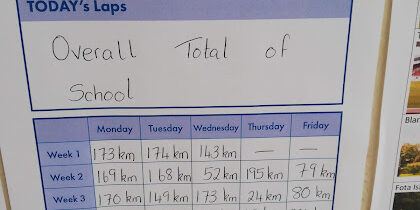 TODAY's Laps
Overall Total of
School
Monday Tuesday Wednesday Thursday Friday
Week 1 173 km 174 km 143 km — —
Week 2 169 km 168 km 52 km 195 km 79 km
Week 3 170 km 149 km 173 km 24 km 80 km
Fota Is